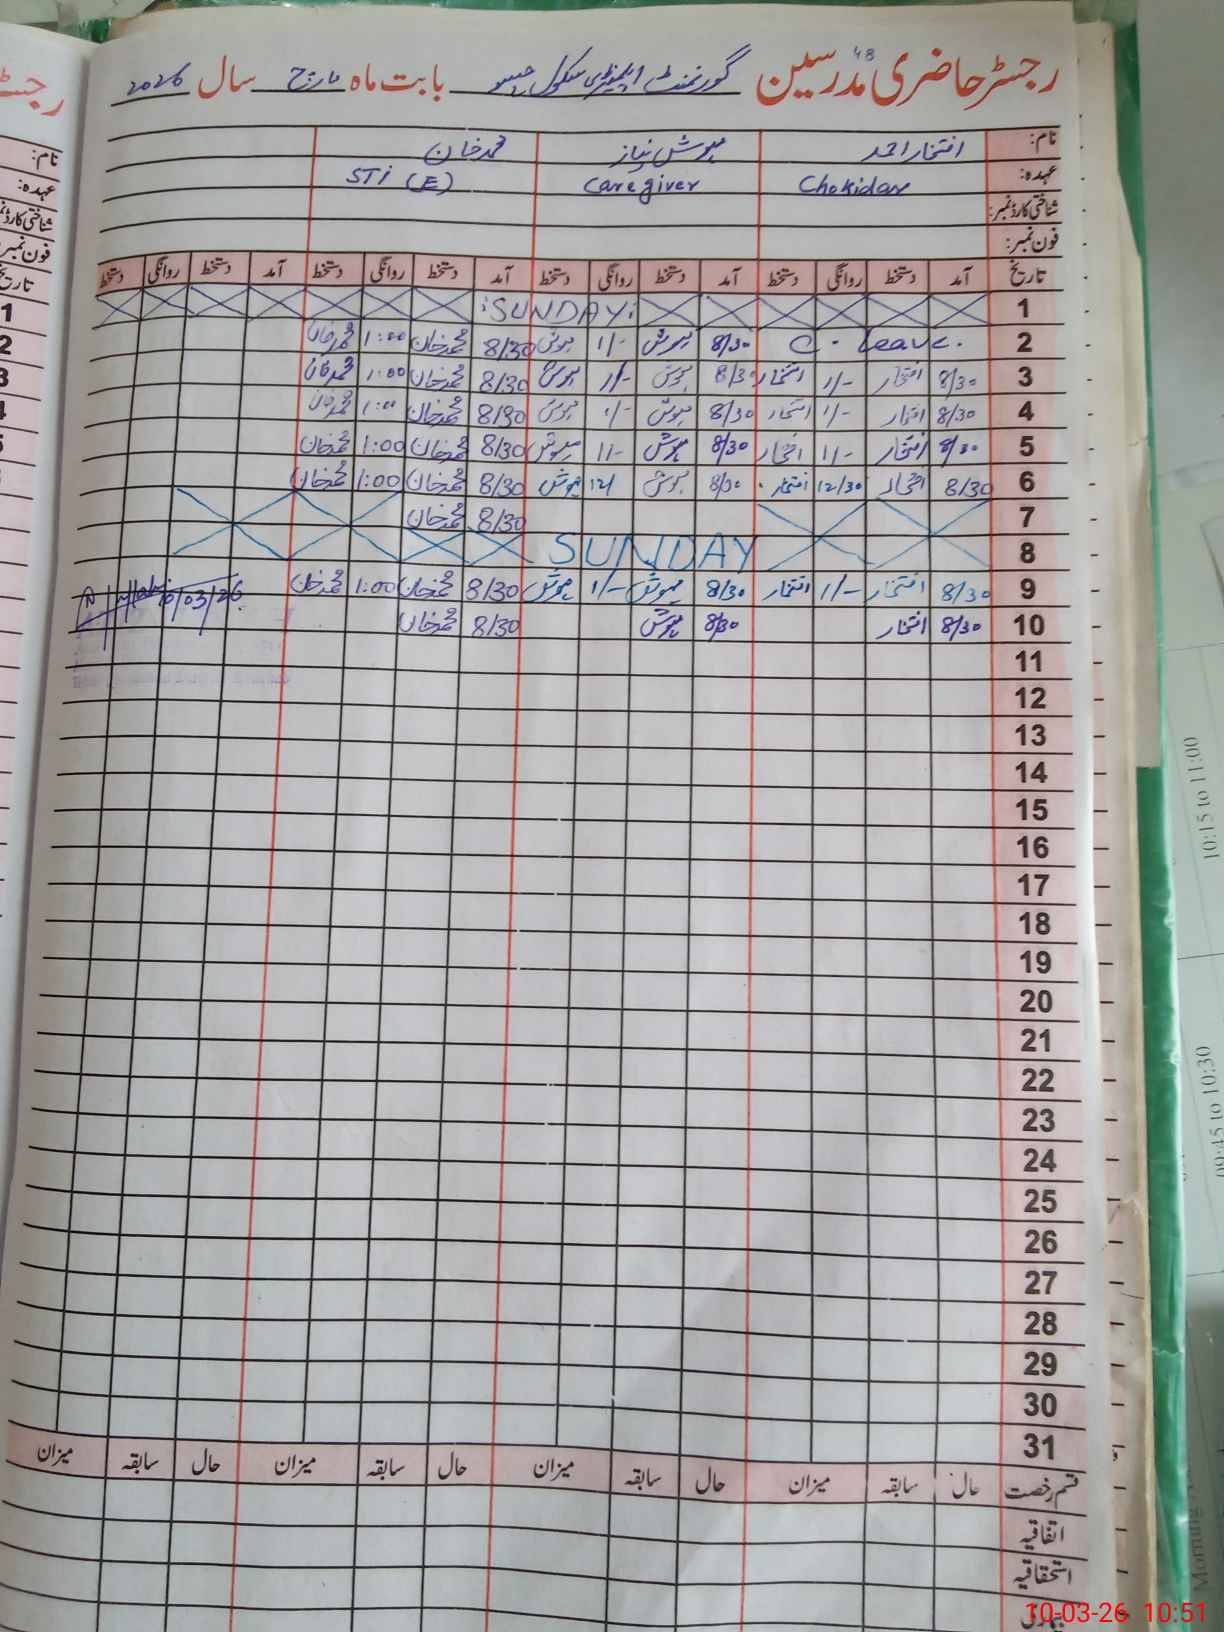 48
رجسٹر حاضری مدرسین گورنمنٹ ایلیمنٹری سکول بابت ماہ مارچ سال 2026
نام: افتخار احمد مہوش نیاز محمد خان
عہدہ: Chokidar Caregiver STI (E)
شناختی کارڈ نمبر:
فون نمبر:
تاریخ آمد دستخط روانگی دستخط آمد دستخط روانگی دستخط آمد دستخط روانگی دستخط آمد دستخط روانگی دستخط
1 SUNDAY
2 C. Leave. 8/30 مہوش 1/- مہوش 8/30 محمد خان 1:00 محمد خان
3 8/30 افتخار 1/- افتخار 8/30 مہوش 1/- مہوش 8/30 محمد خان 1:00 محمد خان
4 8/30 افتخار 1/- افتخار 8/30 مہوش 1/- مہوش 8/30 محمد خان 1:00 محمد خان
5 8/30 افتخار 1/- افتخار 8/30 مہوش 1/- مہوش 8/30 محمد خان 1:00 محمد خان
6 8/30 افتخار 12/30 افتخار 8/30 مہوش 12/ مہوش 8/30 محمد خان 1:00 محمد خان
7 8/30 محمد خان
8 SUNDAY
9 8/30 افتخار 1/- افتخار 8/30 مہوش 1/- مہوش 8/30 محمد خان 1:00 محمد خان 10/03/26
10 8/30 افتخار 8/30 مہوش 8/30 محمد خان
11
12
13
14
15
16
17
18
19
20
21
22
23
24
25
26
27
28
29
30
31
قسم رخصت حال سابقہ میزان حال سابقہ میزان حال سابقہ میزان حال سابقہ میزان
اتفاقیہ
استحقاقیہ
بیماری
10:15 to 11:00
09:45 to 10:30
Morning
10-03-26 10:51